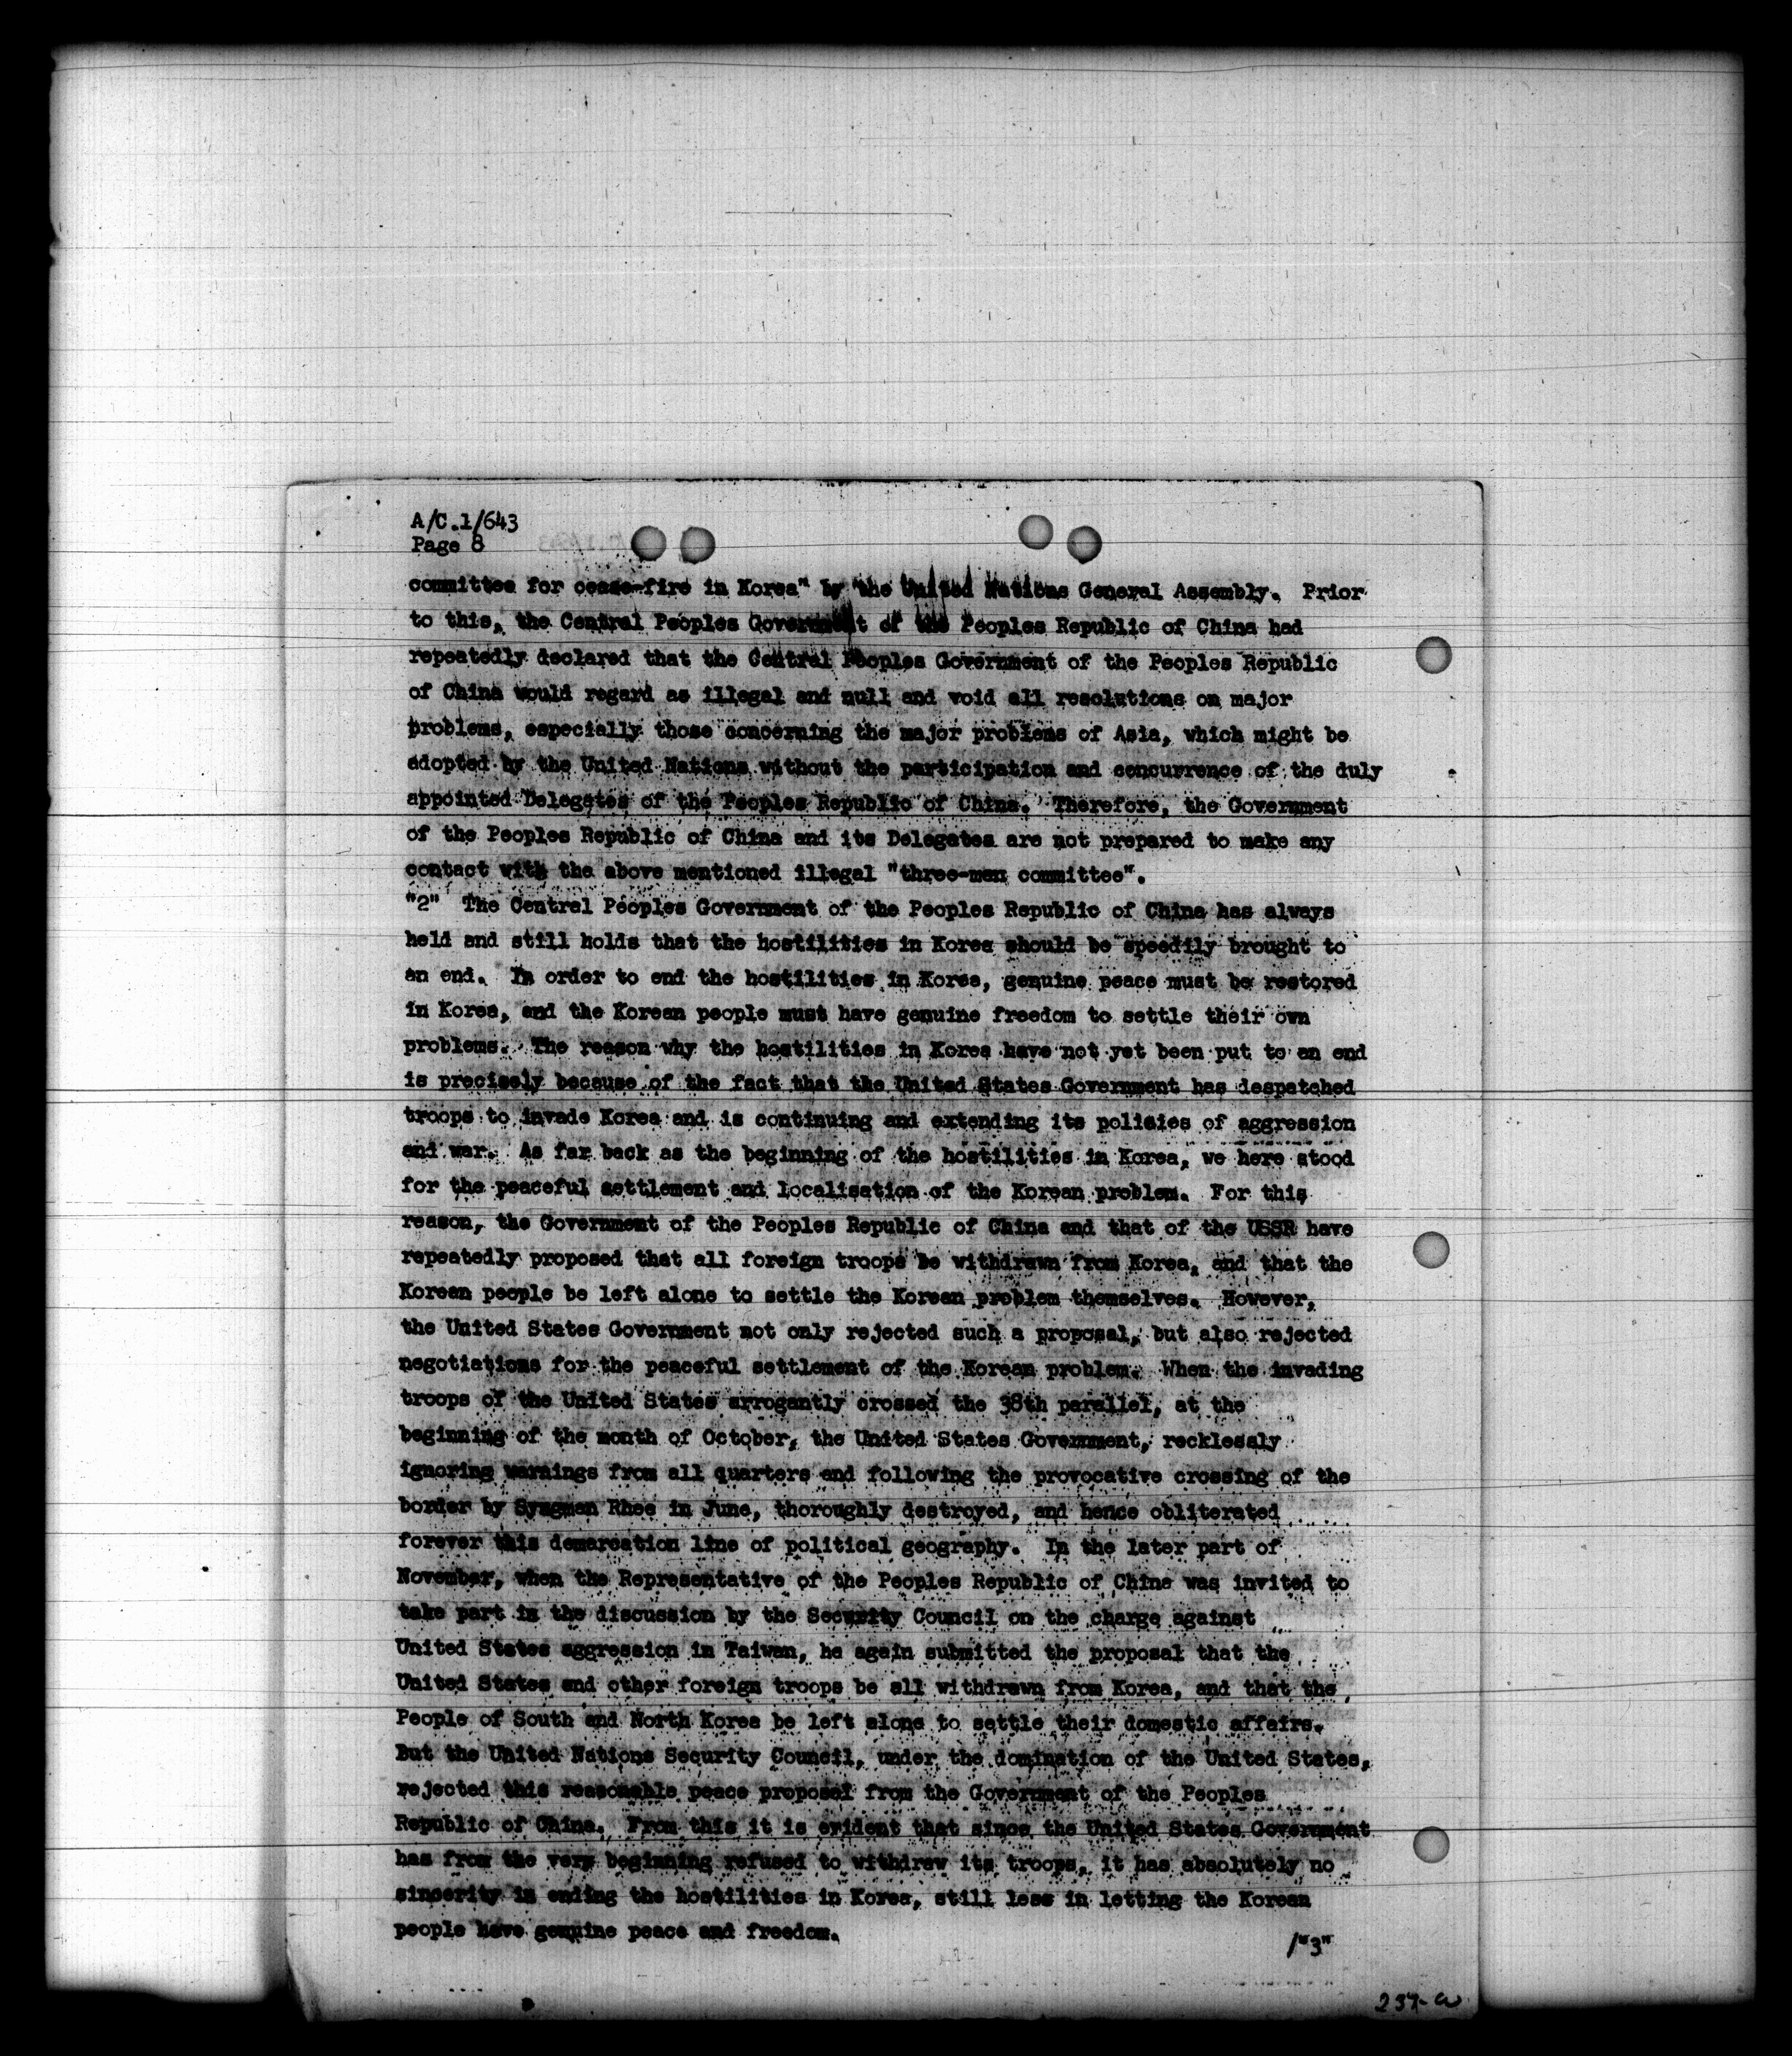 A/C.1/643
Page 8
committee for cease-fire in Korea" by the United Nations General Assembly. Prior
to this, the Central Peoples Government of the Peoples Republic of China had
repeatedly declared that the Central Peoples Government of the Peoples Republic
of China would regard as illegal and null and void all resolutions on major
problems, especially those concerning the major problems of Asia, which might be
adopted by the United Nations without the participation and concurrence of the duly
appointed Delegates of the Peoples Republic of China. Therefore, the Government
of the Peoples Republic of China and its Delegates are not prepared to make any
contact with the above mentioned illegal "three-man committee".
"2" The Central Peoples Government of the Peoples Republic of China has always
held and still holds that the hostilities in Korea should be speedily brought to
an end. In order to end the hostilities in Korea, genuine peace must be restored
in Korea, and the Korean people must have genuine freedom to settle their own
problems. The reason why the hostilities in Korea have not yet been put to an end
is precisely because of the fact that the United States Government has despatched
troops to invade Korea and is continuing and extending its policies of aggression
and war. As far back as the beginning of the hostilities in Korea, we here stood
for the peaceful settlement and localisation of the Korean problem. For this
reason, the Government of the Peoples Republic of China and that of the USSR have
repeatedly proposed that all foreign troops be withdrawn from Korea, and that the
Korean people be left alone to settle the Korean problem themselves. However,
the United States Government not only rejected such a proposal, but also rejected
negotiations for the peaceful settlement of the Korean problem. When the invading
troops of the United States arrogantly crossed the 38th parallel, at the
beginning of the month of October, the United States Government, recklessly
ignoring warnings from all quarters and following the provocative crossing of the
border by Syngman Rhee in June, thoroughly destroyed, and hence obliterated
forever this demarcation line of political geography. In the later part of
November, when the Representative of the Peoples Republic of China was invited to
take part in the discussion by the Security Council on the charge against
United States aggression in Taiwan, he again submitted the proposal that the
United States and other foreign troops be all withdrawn from Korea, and that the
People of South and North Korea be left alone to settle their domestic affairs.
But the United Nations Security Council, under the domination of the United States,
rejected this reasonable peace proposal from the Government of the Peoples
Republic of China. From this it is evident that since the United States Government
has from the very beginning refused to withdraw its troops, it has absolutely no
sincerity in ending the hostilities in Korea, still less in letting the Korean
people have genuine peace and freedom.
/"3"